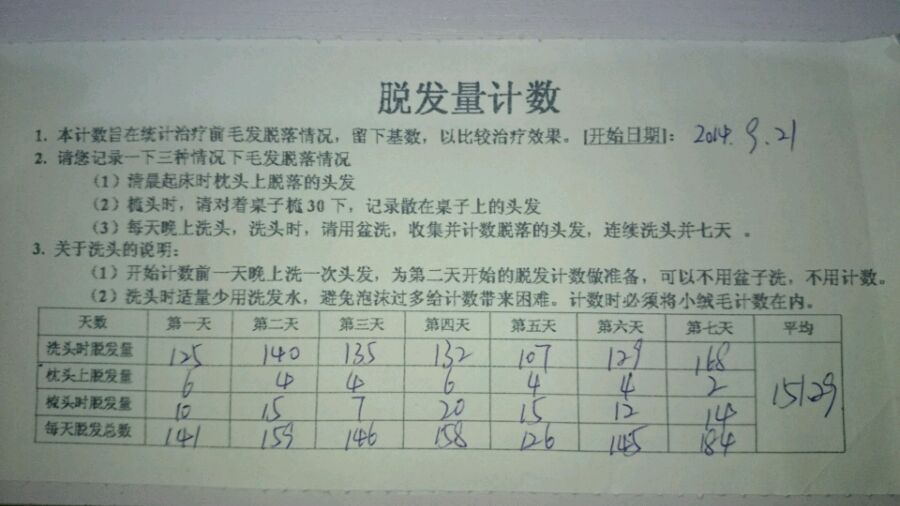 脱发量计数
1. 本计数旨在统计治疗前毛发脱落情况，留下基数，以比较治疗效果。[开始日期]： 2014.9.21
2. 请您记录一下三种情况下毛发脱落情况
（1）清晨起床时枕头上脱落的头发
（2）梳头时，请对着桌子梳30下，记录散在桌子上的头发
（3）每天晚上洗头，洗头时，请用盆洗，收集并计数脱落的头发，连续洗头并七天 。
3. 关于洗头的说明：
（1）开始计数前一天晚上洗一次头发，为第二天开始的脱发计数做准备，可以不用盆子洗，不用计数。
（2）洗头时适量少用洗发水，避免泡沫过多给计数带来困难。计数时必须将小绒毛计数在内。
天数 第一天 第二天 第三天 第四天 第五天 第六天 第七天 平均
洗头时脱发量 125 140 135 132 107 129 168
枕头上脱发量 6 4 4 6 4 4 2 151.29
梳头时脱发量 10 15 7 20 15 12 14
每天脱发总数 141 159 146 158 126 145 184